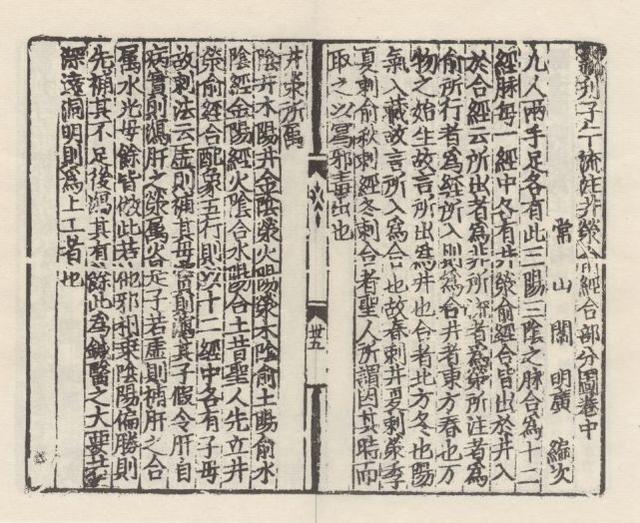 列子午流注井滎俞經合部分圖卷中
常山閻明廣編次
凡人兩手足各有此三陽三陰之脉合為十二
經脉每一經中各有井滎俞經合皆出於井入
於合經云所出者為井所流者為滎所注者為
俞所行者為經所入則為合井者東方春也万
物之始生故言所出為井也合者北方冬也陽
氣入藏故言所入為合也故春刺井夏刺滎季
夏刺俞秋刺經冬刺合者聖人所謂因其時而
取之以寫邪毒出也
卅五
井滎所属
陰井木陽井金陰滎火陽滎木陰俞土陽俞水
陰經金陽經火陰合水陽合土昔聖人先立井
滎俞經合配象五行則以十二經中各有子母
故刺法云虛則補其母實則瀉其子假令肝自
病實則瀉肝之滎属火是子若虛則補肝之合
属水光母餘皆倣此若他邪相乘陰陽偏勝則
先補其不足後瀉其有餘此為鍼醫之大要若
深遠洞明則為上工者也